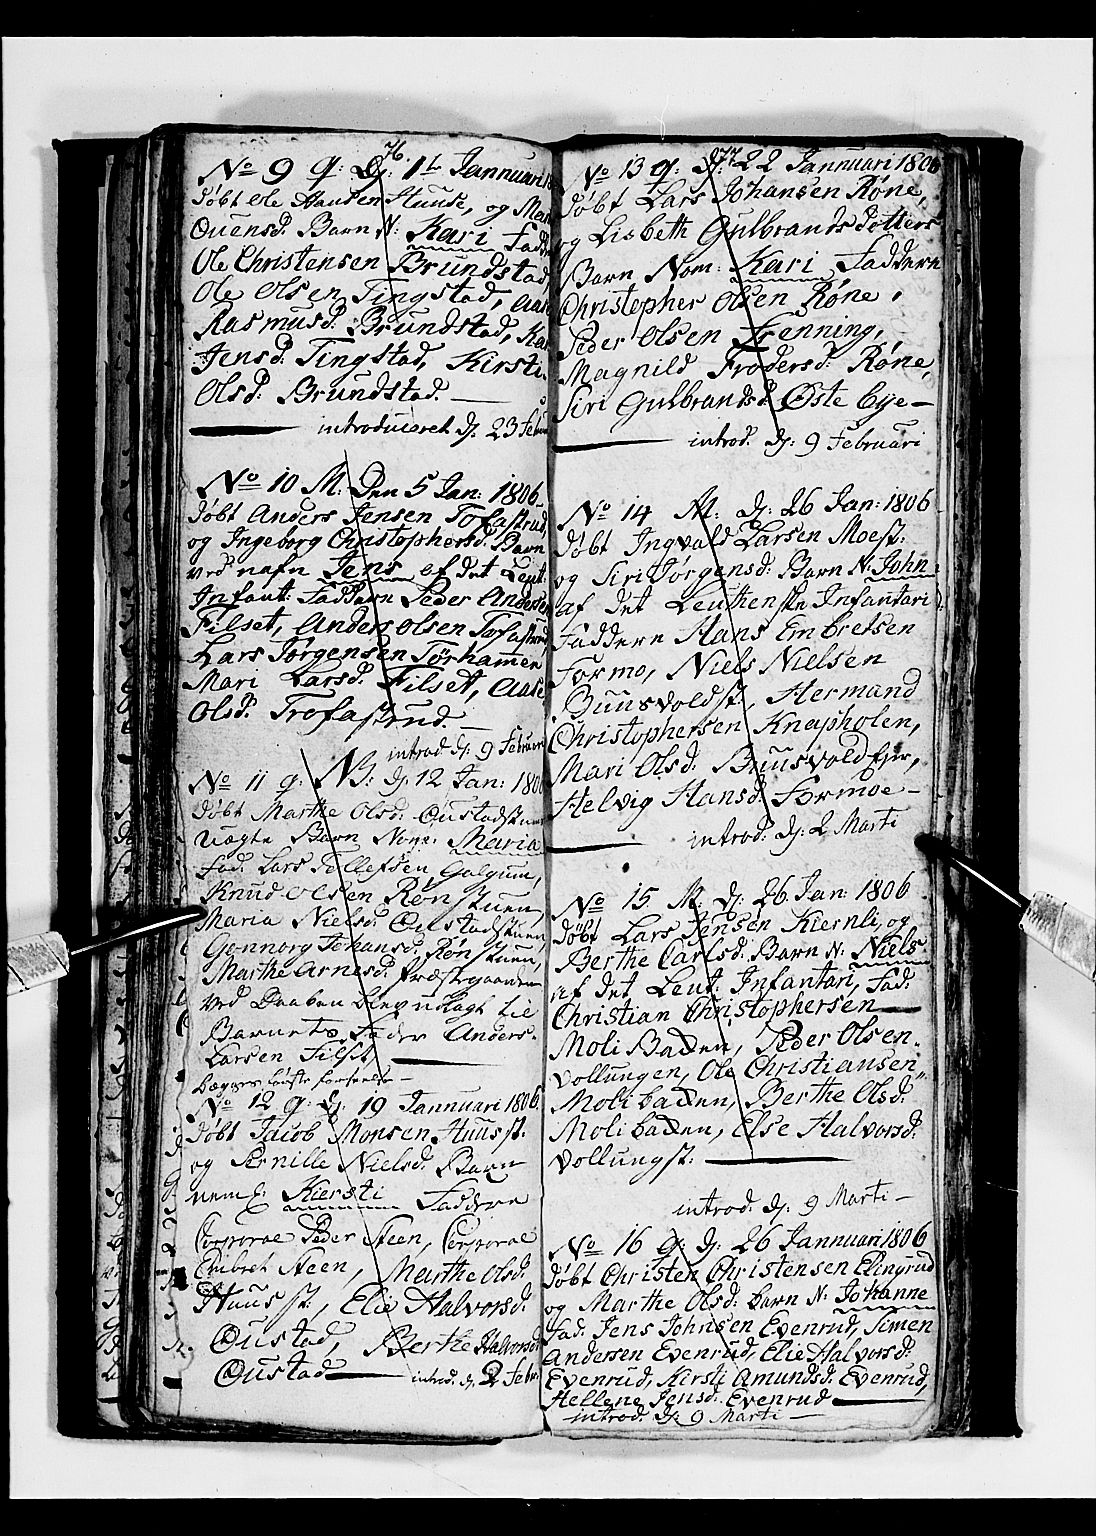 76.
No 9 q: Dj: 1te Jannuari 18
døbt Ole Hansen Stuusz, og Mari
Ouensd. Barn N: Kari Fadd
Ole Christensen Brundstad
Ole Olsen Tingstad, Aase
Rasmusd: Brundstad, Kari
Jensd: Tingstad, Kirsti
Olsd: Brundstad.
introduceret dj. 23 Febru
No 10 M: Den 5 Jan: 1806
døbt Anders Jensen Tofastrud,
og Ingeborg Christophersd: Barn
ved nafn Jens af det Leut:
Infant: Faddern Peder Andersen
Filset, Anders Olsen Tofastrud,
Lars Jørgensen Tørhamer
Mari Larsd. Filset, Aase
Olsd. Trofastrud.
introd. dj. 9 Februari
No 11 q: NB: dj: 12 Jan: 180
døbt Marthe Olsd: Oustadstuen
uægte Barn Nom: Maria
Fad: Lars Tollefsen Galgum,
Knud Olsen Rønstuen,
Maria Nielsd: Oustadstuen
Gonnorg Johansd: Rønstuen,
Marthe Arnesd: Præstgaarden
ved Daaben blev udlagt til
Barnets Fader Anders
Larsen Filset
begges første forseelse
No 12 q: dj: 19 Jannuari 1806
døbt Jacob Monsen Huusst:
og Pernille Nielsd: Barn
neml: Kiersti Faddern
Corporal Peder Steen, Corporal
Embret Steen, Marthe Olsd:
Huusst:, Elie Halvorsd:
Oustad, Berthe Halvorsd:
Oustad introd. dj. 2 Febr:
77
No 13 q. dj: 22 Jannuari 1806
døbt Lars Johansen Røne,
og Lisbeth Gulbrandsdotters
Barn Nom: Kari Faddern
Christopher Olsen Røne,
Peder Olsen Frenning,
Magnild Frodersd: Røne,
Siri Gulbrandsd: Øste bye
introd. dj: 9 Februari
No 14 M: dj: 26 Jan: 1806
døbt Ingvald Larsen Moest:
og Siri Jørgensd: Barn N: John
af det Leuthenske Infantari
Faddern Hans Embretsen
Formo, Niels Nielsen
Buusvoldst:, Hermand
Christophersen Knapholen,
Mari Olsd: Buusvold Eier,
Helvig Hansd: Formoe
introd: dj: 2 Marti
No 15 M. dj: 26 Jan: 1806
døbt Lars Jensen Kiernli, og
Berthe Carlsd: Barn N: Niels
af det Leut: Infantari, Fad:
Christian Christophersen
Moli Baden, Peder Olsen
Vollungen, Ole Christiansen
Molibaden, Berthe Olsd:
Molibaden, Else Halvorsd:
Vollungst:
introd. dj. 9 Marti
No 16 q: dj: 26 Jannuari 1806
døbt Christen Christensen Elingrud
og Marthe Olsd: barn N: Johanne
Fad: Jens Johnsen Evenrud, Simen
Andersen Evenrud, Elie Halvorsd:
Evenrud, Kirsti Amundsd: Evenrud,
Hellene Jensd: Evenrud
introd. dj: 9 Marti